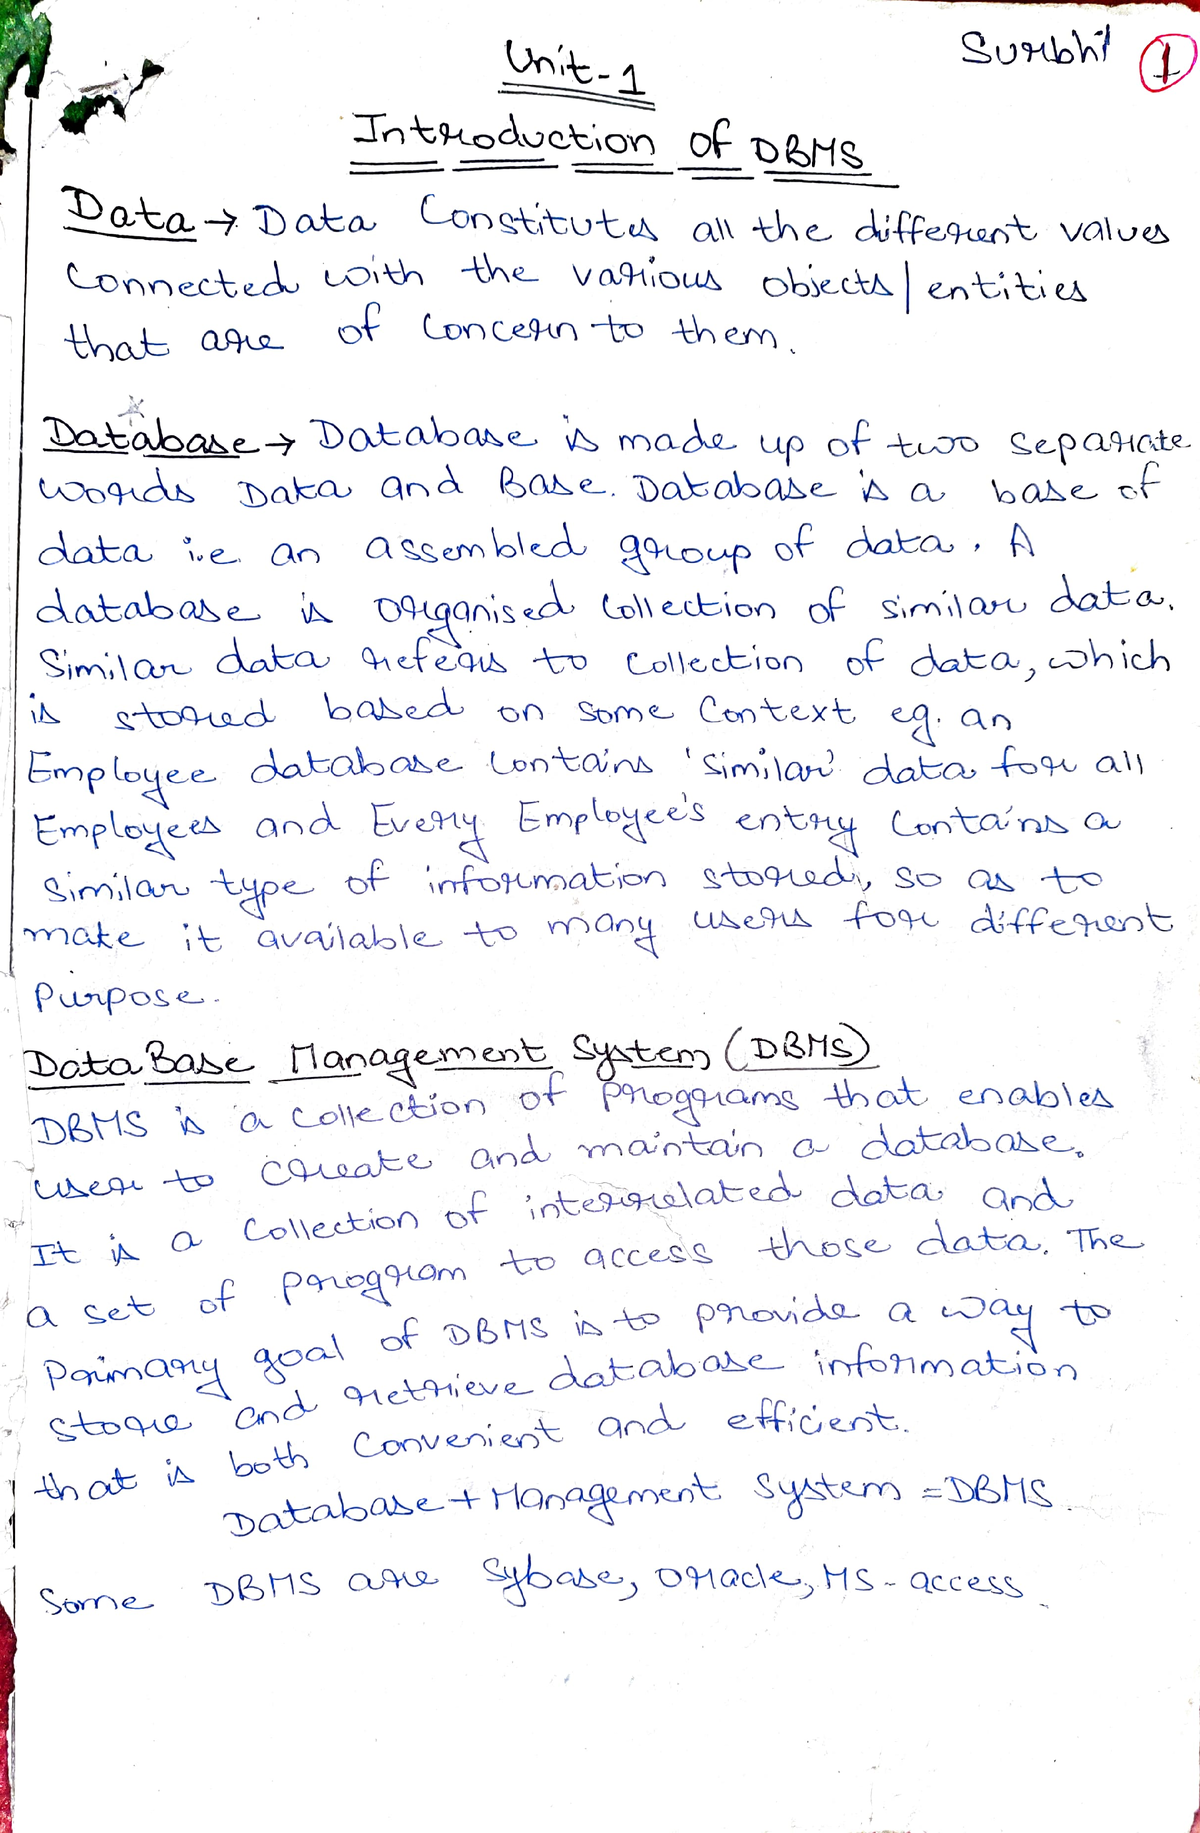 Surbhi 1
Unit-1
Introduction of DBMS
Data → Data Constitutes all the different values
Connected with the various objects/entities
that are of Concern to them.
Database → Database is made up of two separate
words Data and Base. Database is a base of
data i.e. an assembled group of data. A
database is organised Collection of similar data.
Similar data refers to Collection of data, which
is stored based on some Context eg. an
Employee database Contains 'Similar' data for all
Employees and Every Employee's entry Contains a
Similar type of information stored, so as to
make it available to many users for different
Purpose.
DataBase Management System (DBMS)
DBMS is a Collection of programs that enables
user to create and maintain a database.
It is a Collection of interrelated data and
a set of program to access those data. The
Primary goal of DBMS is to provide a way to
store and retrieve database information
that is both Convenient and efficient.
Database + Management System = DBMS.
Some DBMS are Sybase, oracle, MS-access.